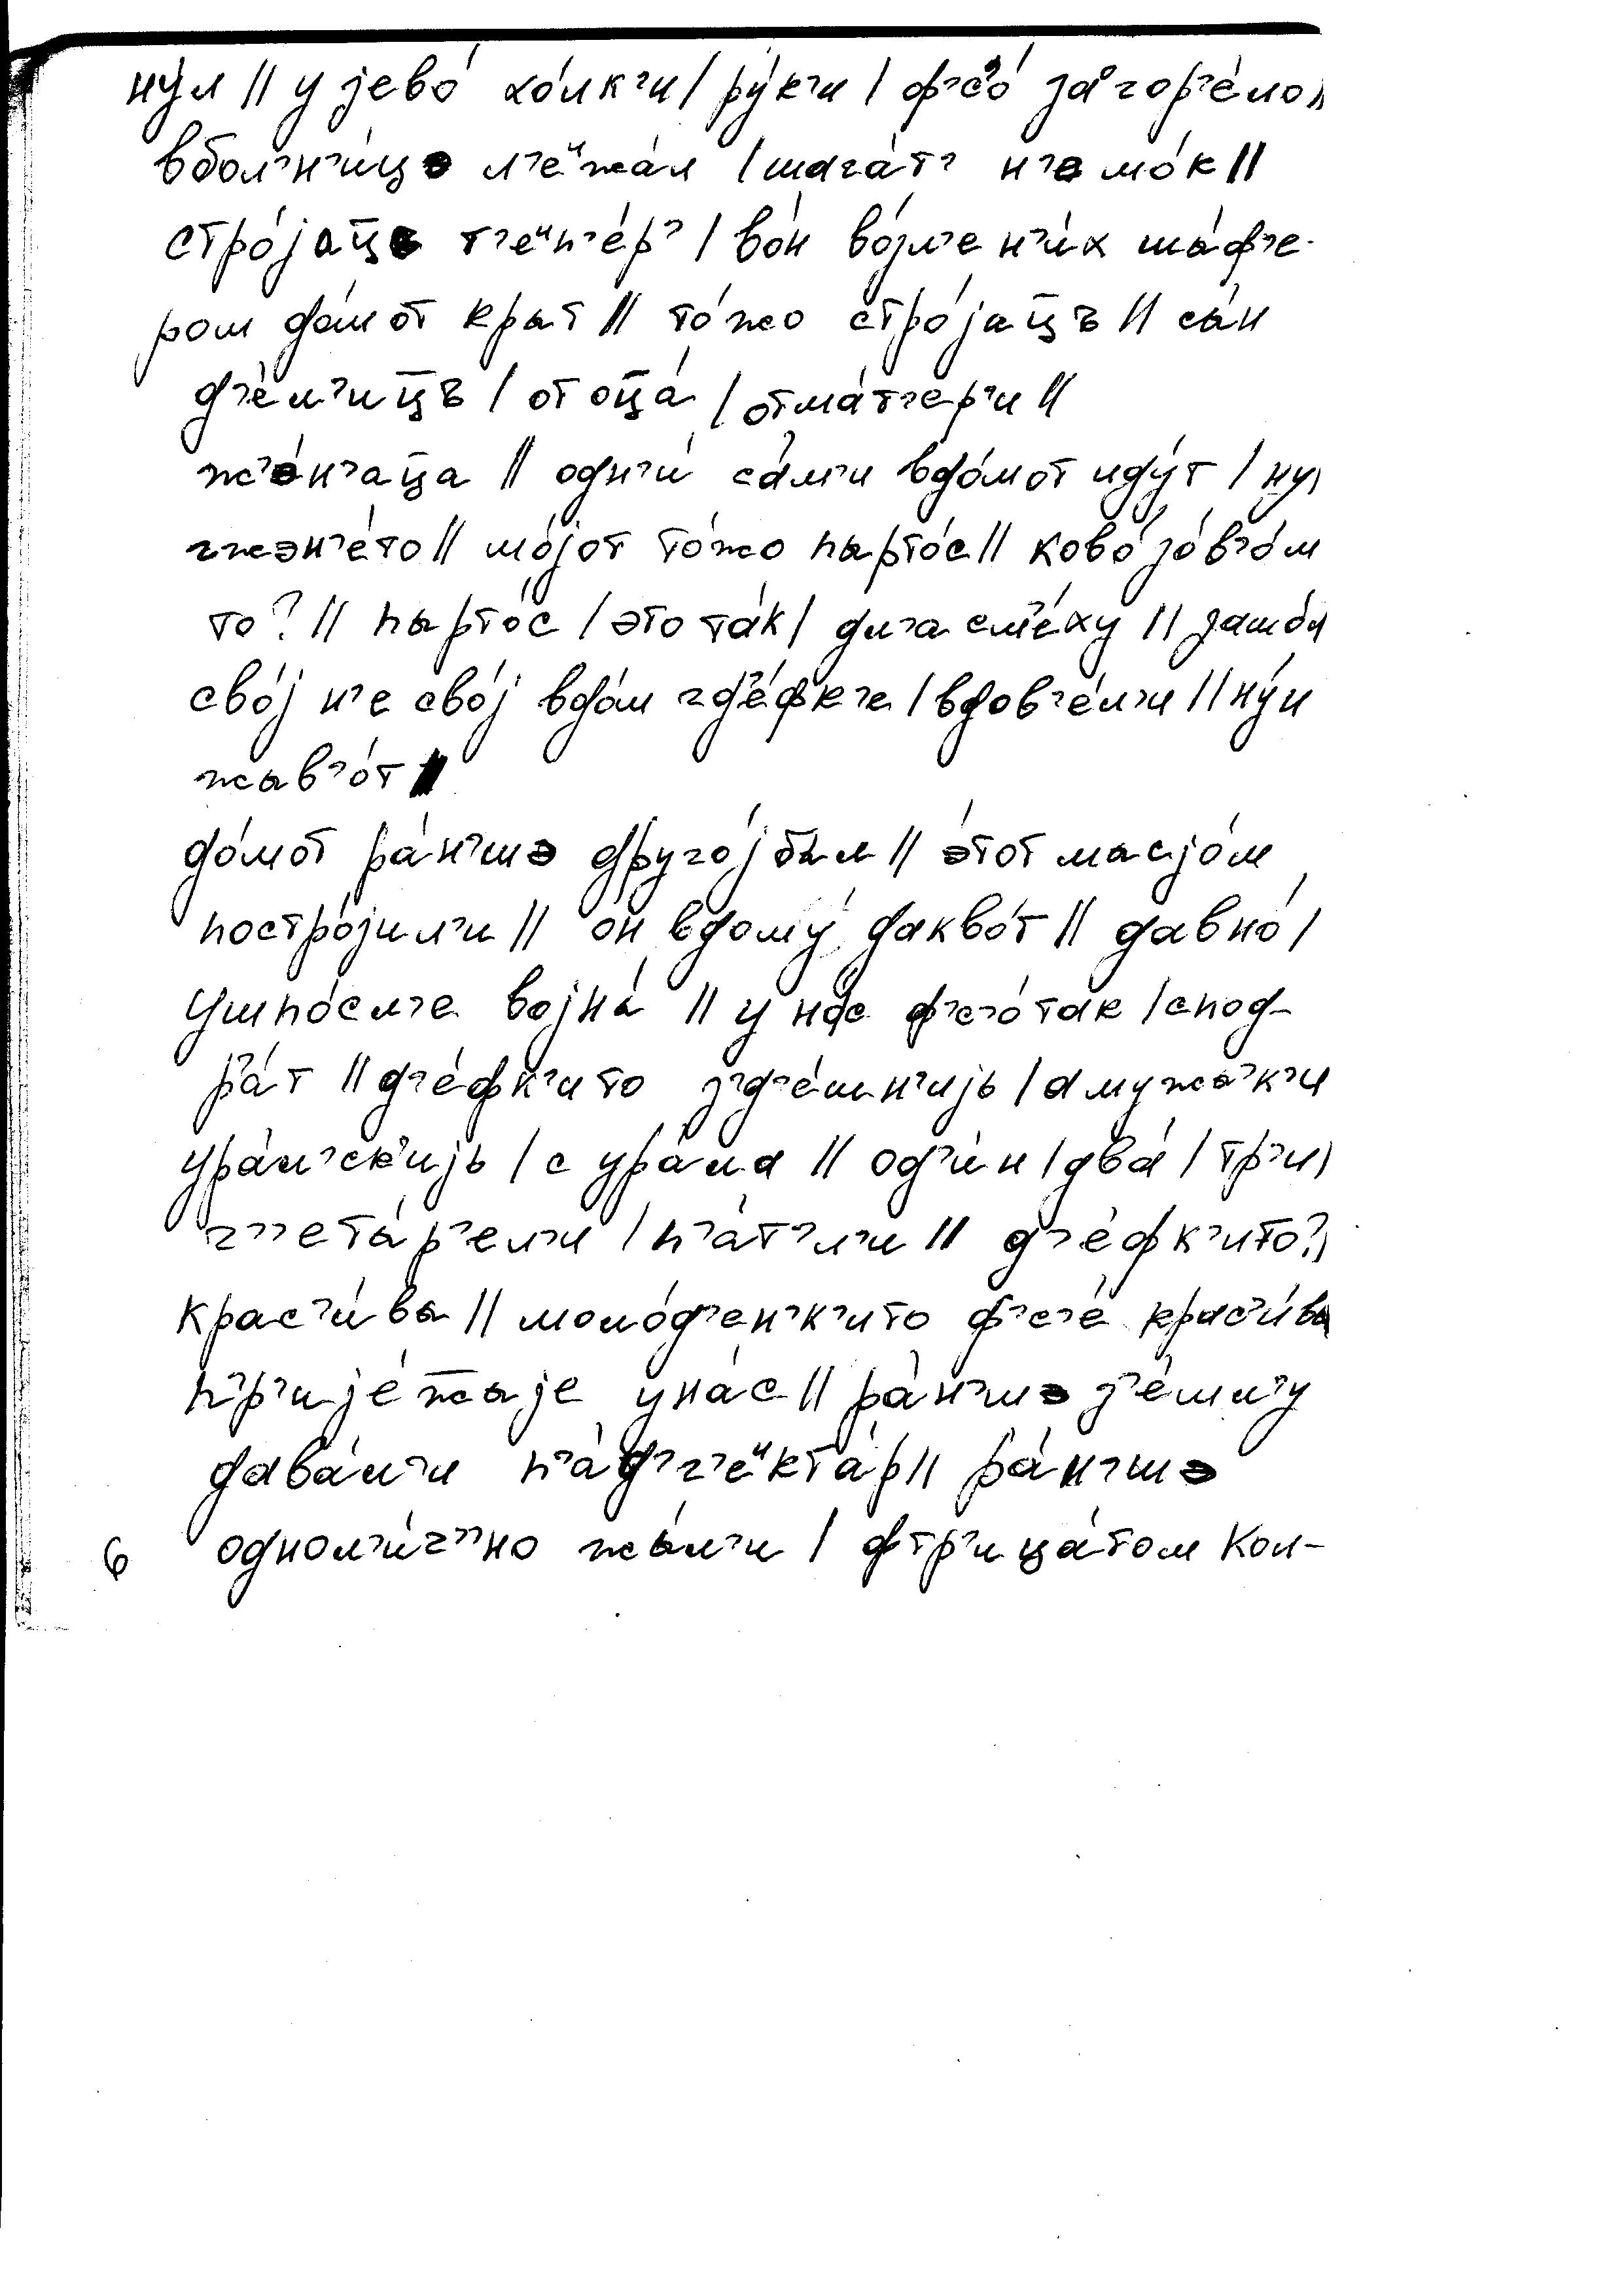 ну́л // у јево́ хо́лк'и / ру́к'и / ф'с'о́ заᵒгор'е́ло //
в бол'н'и́цэ л'еᶦᶦжа́л / шага́т' н'е мо́к //
стро́јац̄ъ т'еᶦᶦп'е́р' / во́н во́зл'е н'и́х шы́ф'е-
ром до́мот кры́т // то́жо стро́јац̄ъ // сы́н
д'е́л'иц̄ъ / от оц̄а́ / от ма́т'ер'и //
жэ́н'ац̄а // одн'и́ са́м'и в до́мот иду́т / ну /
г жэн'е́то // мо́јот то́жо пырто́с // ково́ зов'о́м
то? // пырто́с / это та́к / дл'а см'е́ху // зашо́л
сво́ј н'е сво́ј в до́м г д'е́фк'е / в дов'е́л'и // ну́ и
жыв'о́т //
до́мот ра́н'шэ друго́ј бы́л // э́тот мы с јо́м
постро́јил'и // о́н в дому́ да к во́т // давно́ /
уш по́сл'е војны́ // у на́с ф'с'о́ так / спод-
р'а́т // д'е́фк'ито з'д'е́шн'ијь / а мужык'и́
ура́л'ск'ијь / с ура́ла // од'и́н / два́ / тр'и /
ч''еты́р'ел'и / п'а́т'л'и // д'е́фк'ито? /
крас'и́вы // моло́д'ен'к'ито ф'с'е́ крас'и́вы
пр'ије́жыје у на́с // ра́н'шэ з'е́мл'у
дава́л'и п'а́д' г'еᶦᶦкта́р // ра́н'шэ
однол'и́ч''но жы́л'и / ф тр'ица́том кол-
6